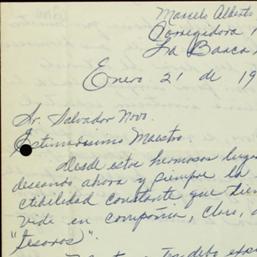 Marcelo Alberto
Corregidora
La Barca
Enero 21 de 19
Sr. Salvador Novo.
Estimadísimo Maestro.
Desde este hermoso lugar
deseando ahora y siempre la
ctibilidad constante que tien
vida en compañía, claro,
"tesoros".